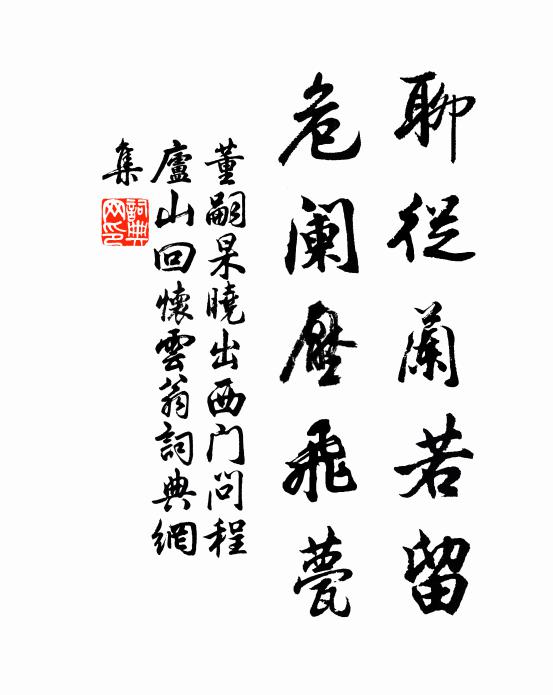 聊從蘭若留
危阑壓飛甍
董嗣杲曉出西门问程
廬山回懷雲翁詞典網
集
詞典
网印